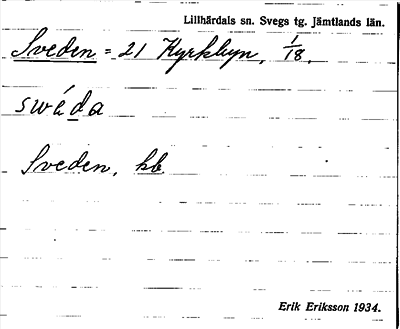 Lillhärdals sn. Svegs tg. Jämtlands län.
Sveden = 21 Kyrkbyn, 1/18.
swéda
Sveden, kb
Erik Eriksson 1934.